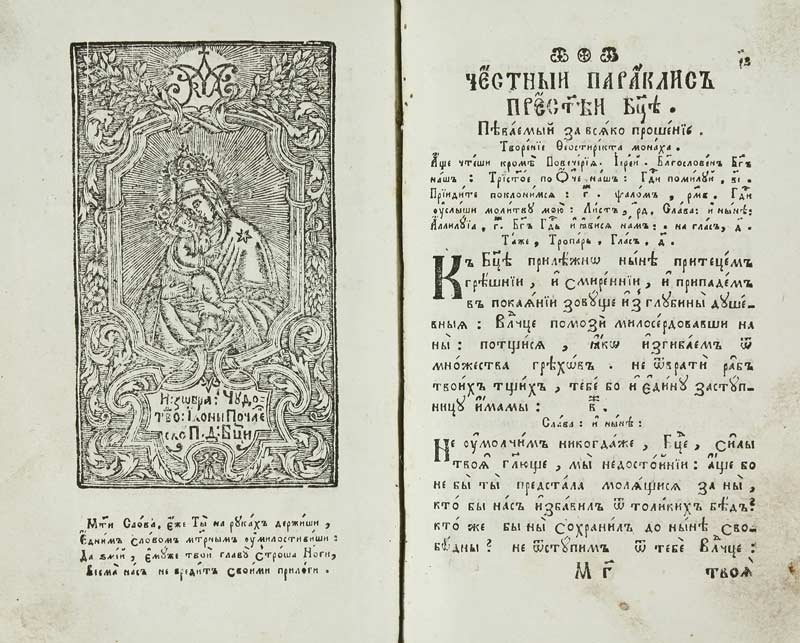 И҆зѡбра: Чудо-
тво: Ікони Почае
ско П. Д: Бц҃и
Мт҃и Сло́ва, є҆́же Ты̀ на рꙋка́хъ держиши,
Є҆ди́нимъ сло́вомъ мт҃рнымъ ѹ҆милостивиши:
Да ѕмі́й, є҆мꙋже твои главꙋ̀ строша Ноги,
Весма̀ на́съ не вредитъ свои́ми прило́ги.
ЧЕ́СТНЫЙ ПАРА́КЛИСЪ
ПРЕС҃ТѢИ БЦ҃Ѣ.
Пѣваемый за всѧко прошенїе.
Творенїе Ѳеостирікта монаха.
А҆ще чте́ши кромѣ̀ Повече́рїѧ. І҆ере́й. Благослове́нъ Бг҃ъ
на́шъ: Трист҃о́е по Ѻ҆́ч҃е на́шъ: Гд҃и помилꙋй, в҃і.
Прїиди́те поклони́мсѧ: г҃. ѱало́мъ, рм҃в. Гд҃и
ѹ҆слы́ши моли́твꙋ мою̀: Ли́стъ, рд҃. Сла́ва: и҆ ны́нѣ:
А҆ллилꙋ́їа, г҃. Бг҃ъ Гд҃ь и҆ ꙗ҆ви́сѧ на́мъ: на гла́съ, д҃.
Та́же, Тропа́рь, Гла́съ, д҃.
Къ Бц҃ѣ прилѣ́жнѡ ны́нѣ притеце́мъ
грѣ́шнїи, и҆ смире́ннїи, и҆ припаде́мъ
въ покаѧ́нїи зовꙋще и҆з̾ глꙋбины̀ дꙋше́-
вныѧ: Вл҃чце помозѝ милосе́рдовавши на
ны̀: потщи́сѧ, ꙗ҆́кѡ и҆згиба́емъ ѿ
мно́жества грѣхѡ́въ. не ѿвратѝ ра́бъ
твои́хъ тщи́хъ, тебе́ бо и҆ є҆ди́нꙋ застꙋп-
ницꙋ и҆́мамы: в҃.
Сла́ва: и҆ ны́нѣ:
Не ѹ҆молчи́мъ никогда́же, Бц҃е, си́лы
твоѧ̑ гл҃юще, мы̀ недосто́йнїи: а҆́ще бо
не бы̀ ты̀ предста́ла молѧ́щисѧ за ны̀,
кто̀ бы на́съ и҆зба́вилъ ѿ толи́кихъ бѣ́дъ?
кто́ же бы ны̀ сохрани́лъ до ны́нѣ сво-
бѡ́дны? не ѿстꙋ́пимъ ѿ тебѐ Вл҃чце:
М г҃ твоѧ̑